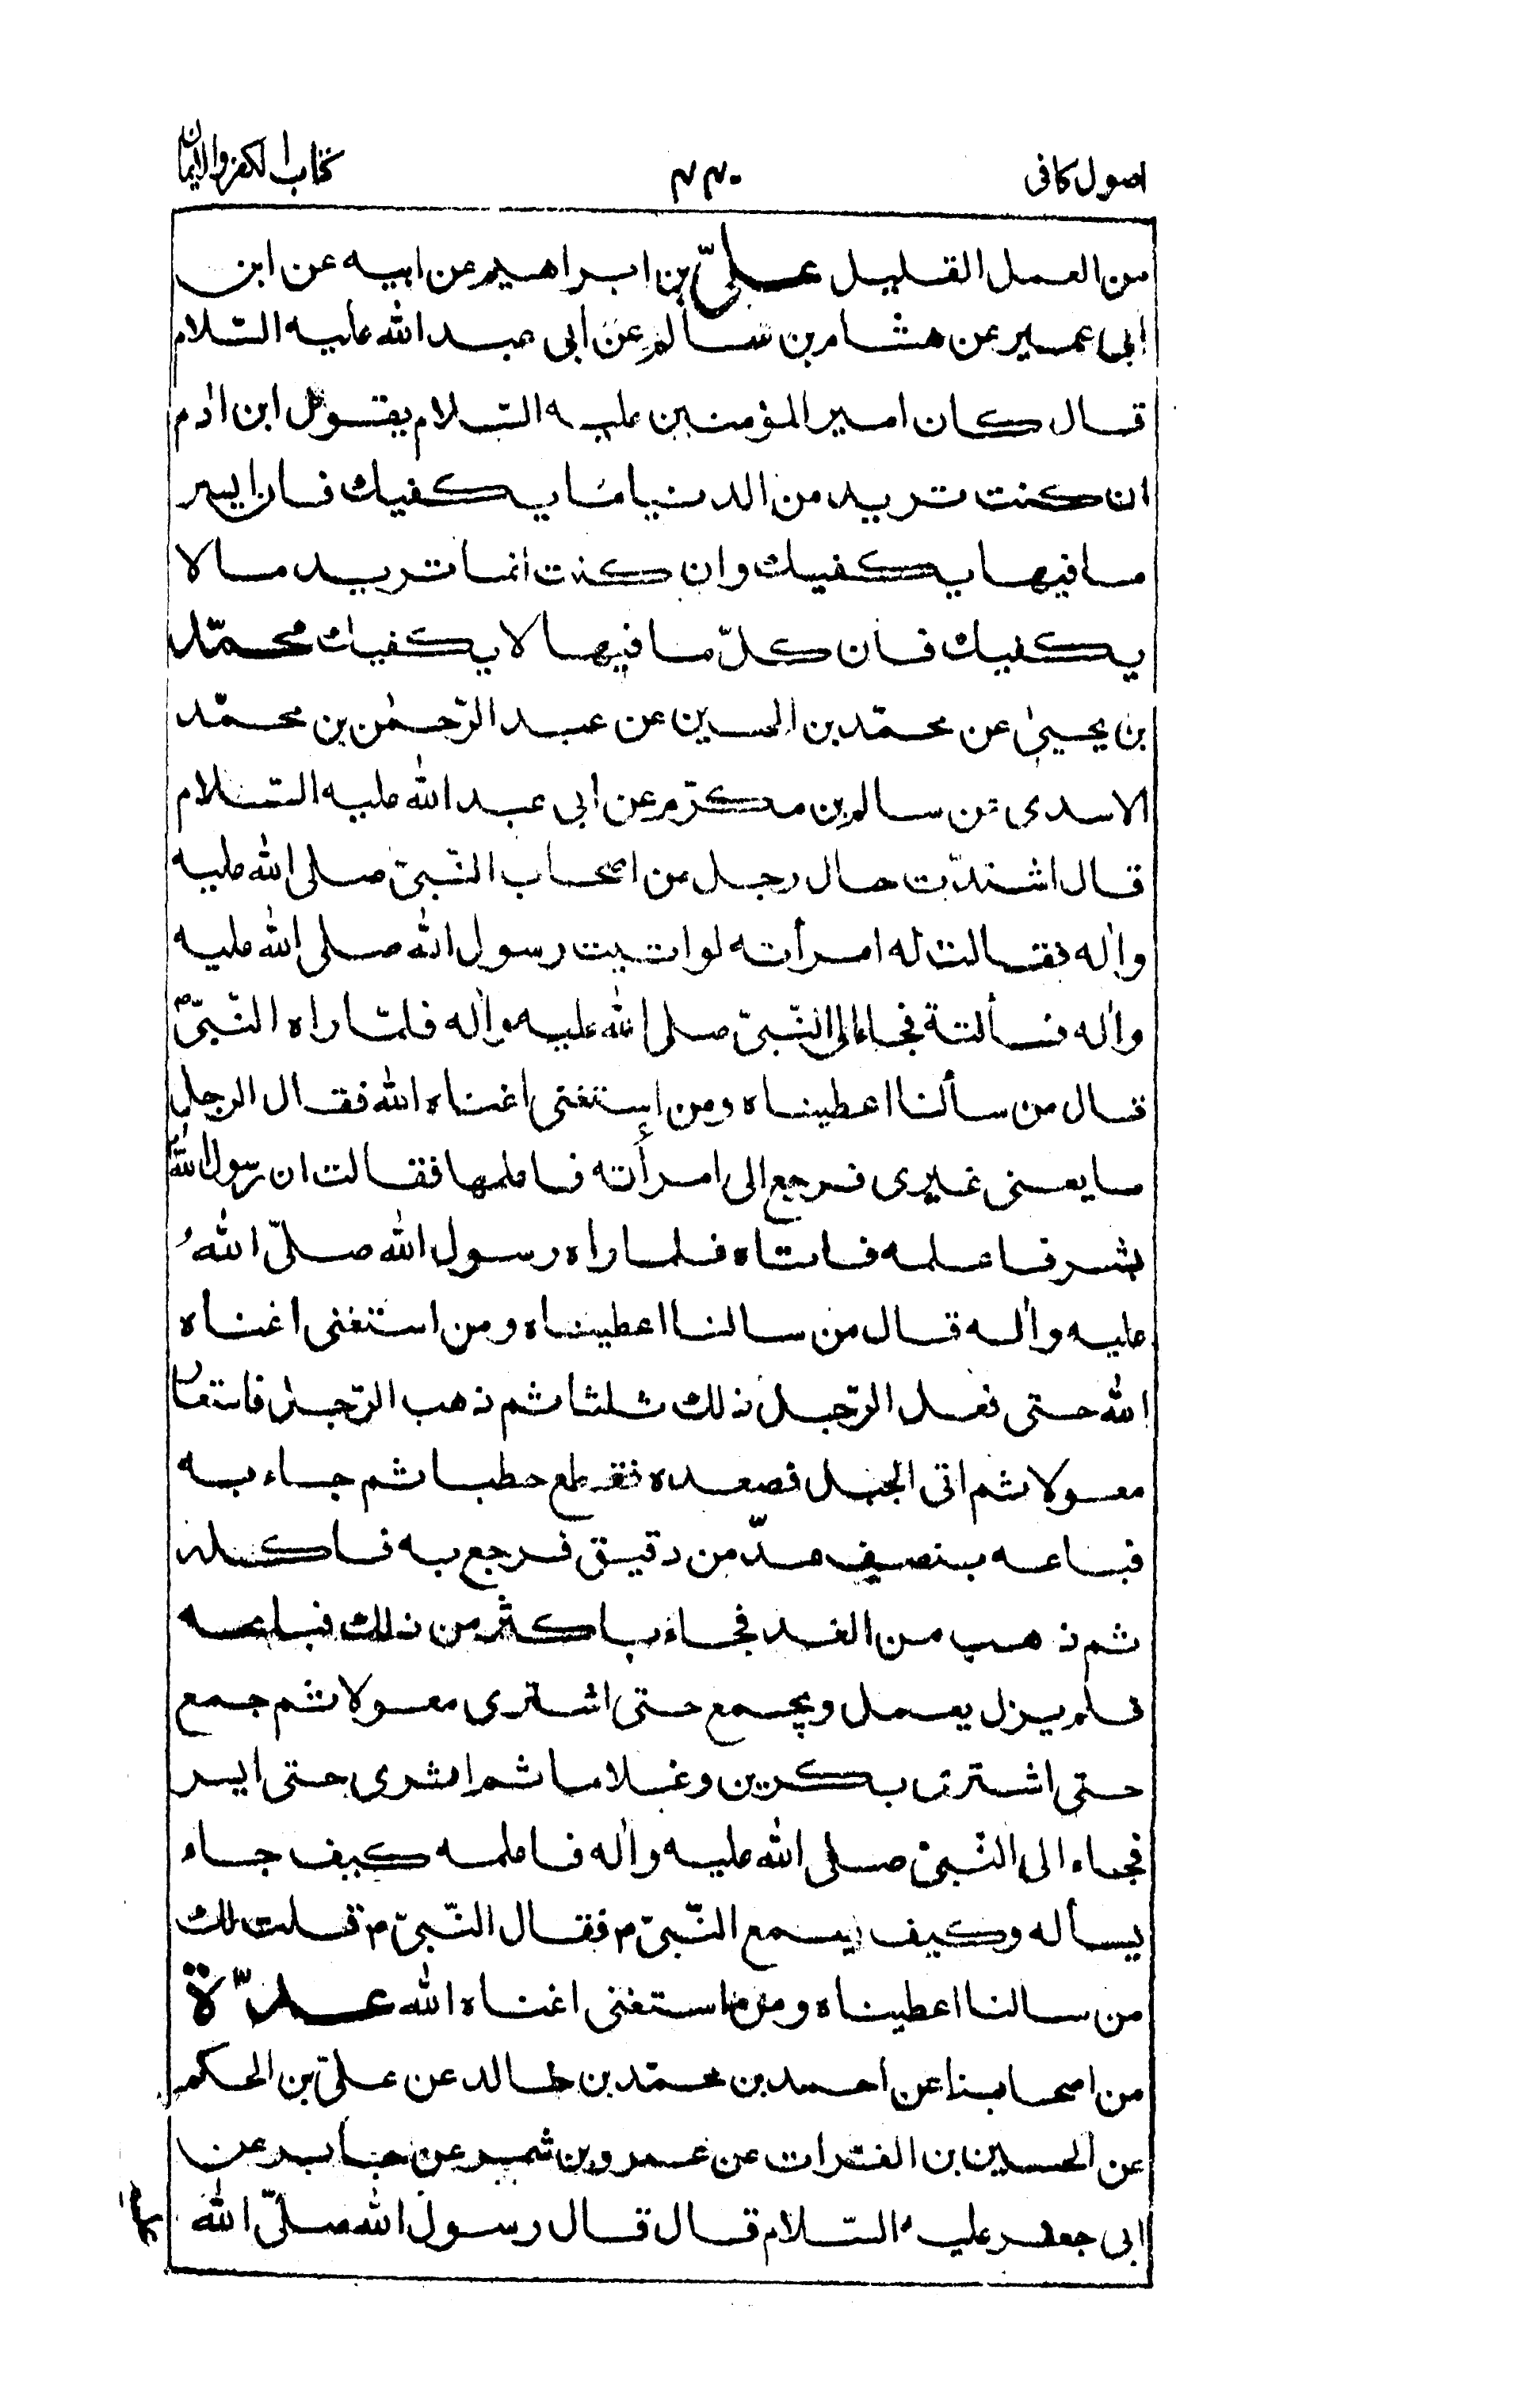 اصول كافى ٤٤٠ كتاب الكفر والايمان
من العمل القليل علىّ بن ابراهيم عن ابيه عن ابن
ابى عمير عن هشام بن سالم عن ابى عبد الله عليه السّلام
قال كان امير المؤمنين عليه السّلام يقول ابن اٰدم
ان كنت تريد من الدنيا ما يكفيك فان ايسر
ما فيها يكفيك وان كنت انما تريد ما لا
يكفيك فان كلّ ما فيها لا يكفيك محمّد
بن يحيىٰ عن محمّد بن الحسين عن عبد الرّحمٰن بن محمّد
الاسدى عن سالم بن مكرّم عن ابى عبد الله عليه السّلام
قال اشتدّت حال رجل من اصحاب النّبىّ صلى الله عليه
واٰله فقالت له امرأته لو اتيت رسول الله صلى الله عليه
واٰله فسألته فجاء الى النّبىّ صلى الله عليه واٰله فلمّا راه النّبىّ ص
قال من سألنا اعطيناه ومن استغنى اغناه الله فقال الرجل
ما يعنى غيرى فرجع الى امرأته فاعلمها فقالت ان رسول الله
بشر فاعلمه فاتاه فلما راه رسول الله صلىّ اللهُ
عليه واٰله قال من سالنا اعطيناه ومن استغنى اغناه
الله حتى فعل الرّجل ذلك ثلثا ثم ذهب الرّجل فاستعار
معولا ثم اتى الجبل فصعده فقطع حطبا ثم جاء به
فباعه بنصف مدّ من دقيق فرجع به فاكله
ثم ذهب من الغد فجاء باكثر من ذلك فباعه
فلم يزل يعمل ويجمع حتى اشترى معولا ثم جمع
حتى اشترى بكرين وغلاما ثم اثرى حتى ايسر
فجاء الى النّبىّ صلى الله عليه واٰله فاعلمه كيف جاء
يسأله وكيف يسمع النّبىّ ص فقال النّبىّ ص قلت لك
من سالنا اعطيناه ومن استغنى اغناه الله عدّة
من اصحابنا عن احمد بن محمّد بن خالد عن علىّ بن الحكم
عن الحسين بن الفرات عن عمرو بن شمر عن جابر عن
ابى جعفر عليه السّلام قال قال رسول الله صلىّ الله
عليه